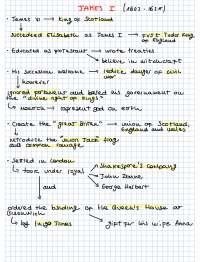 JAMES I (1603 - 1625)
- James VI → King of Scotland
Succeeded Elizabeth as James I → first Tudor King
of England
- Educated as protestant → wrote treaties
believe in witchcraft
- His secession welcome → reduce danger of civil
war
however
ignored parliament and based his government on
the "divine right of kings"
↳ monarch → represent god on earth
- Create the "great Britain" → union of Scotland,
England and Wales
introduce the Union Jack flag
and common language
- Settled in London
↳ took under royal
Shakespeare's company
John Donne
George Herbert
and
ordered the building of the Queen's House at
Greenwich
↳ by Inigo Jones
gift for his wife Anne